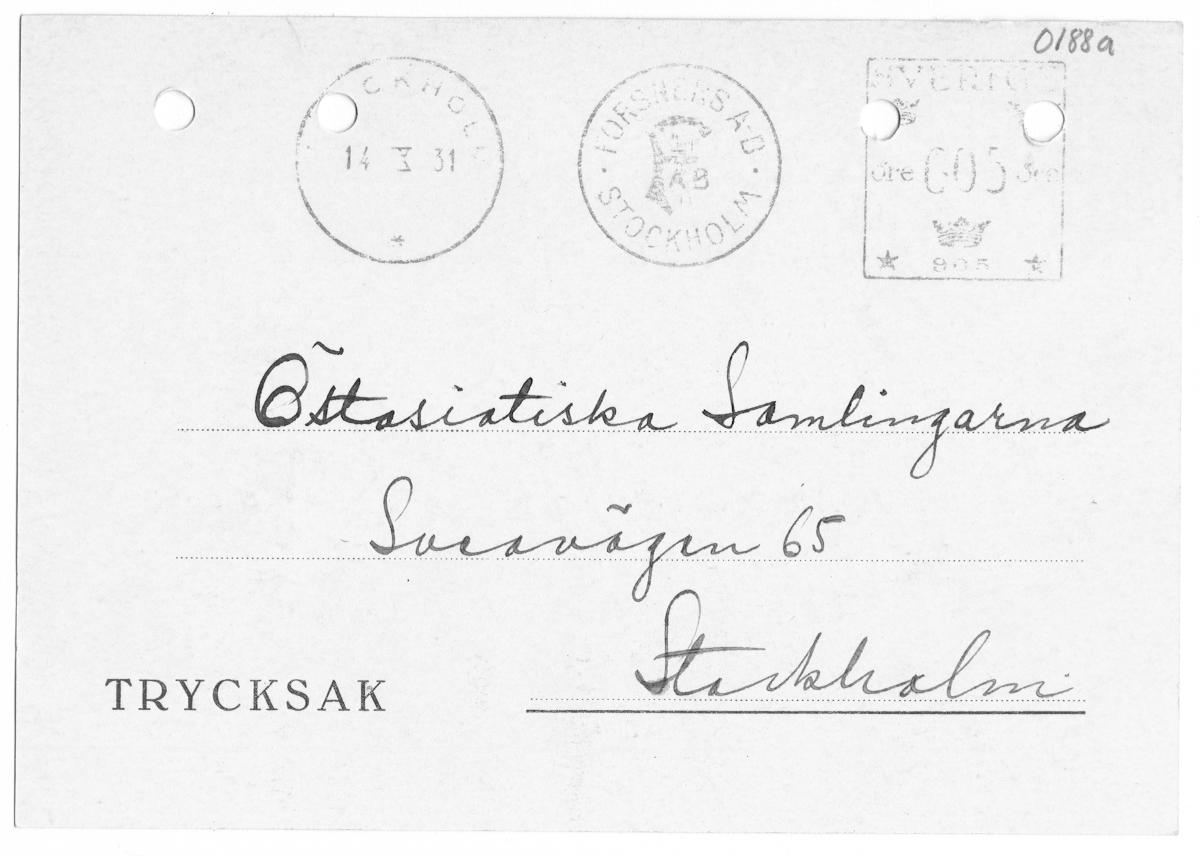 0188a
STOCKHOLM
14 X 31
FORSNERS A-B
F AB
STOCKHOLM
SVERIGE
öre 005 öre
905
Östasiatiska Samlingarna
Sveavägen 65
Stockholm
TRYCKSAK